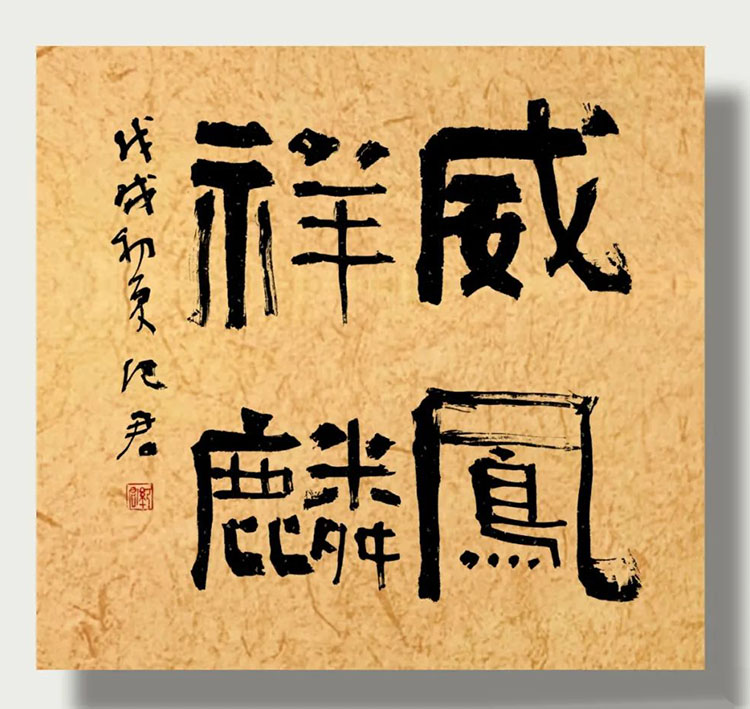 威鳳
祥麟
戊戌初夏 纪君